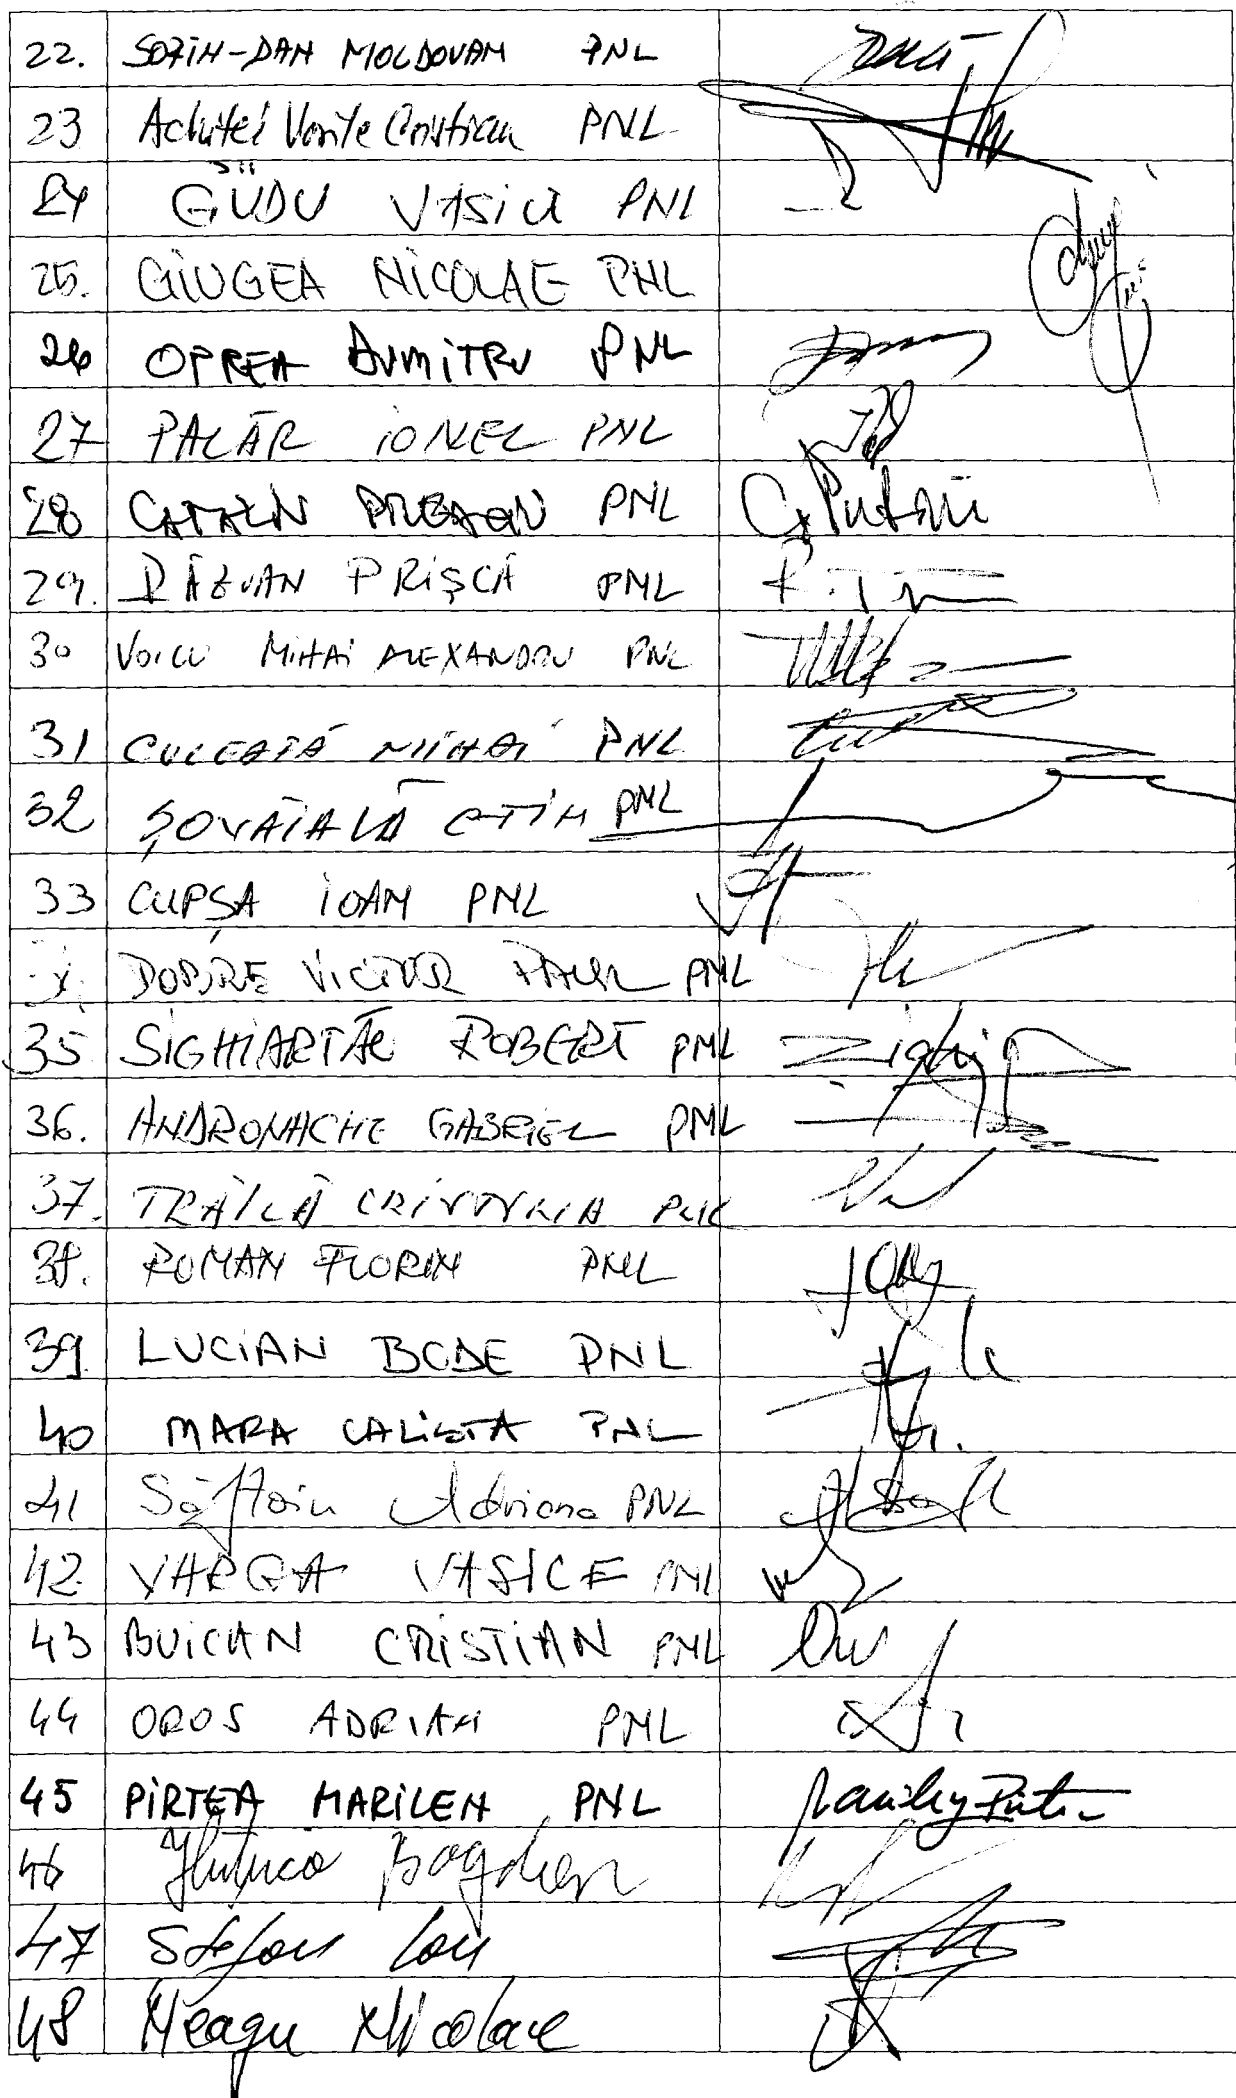 22. SORIN-DAN MOLDOVAN PNL
23 Achitei Vasile Cristian PNL
24 GUDU VASILE PNL
25. GIUGEA NICOLAE PNL
26 OPREA DUMITRU PNL
27 PALĂR IONEL PNL
28 CATALIN PREDOIU PNL
29. RĂZVAN PRIȘCĂ PNL
30 VOICU MIHAI ALEXANDRU PNL
31 CULEAȚĂ MIHAI PNL
32 ȘOVĂIALĂ CTIN PNL
33 CUPȘA IOAN PNL
DOBRE VICTOR PAUL PNL
35 SIGHIARTĂU ROBERT PNL
36. ANDRONACHE GABRIEL PNL
37. TRĂILĂ PNL
38. ROMAN FLORIN PNL
39. LUCIAN BODE PNL
40 MARA CALISTA PNL
41 Săftoiu Adriana PNL
42. VARGA VASILE PNL
43 BUICAN CRISTIAN PNL
44 OROS ADRIAN PNL
45 PIRTEA MARILEN PNL
46 Huțuca Bogdan
47 Stefan Ion
48 Neagu Nicolae